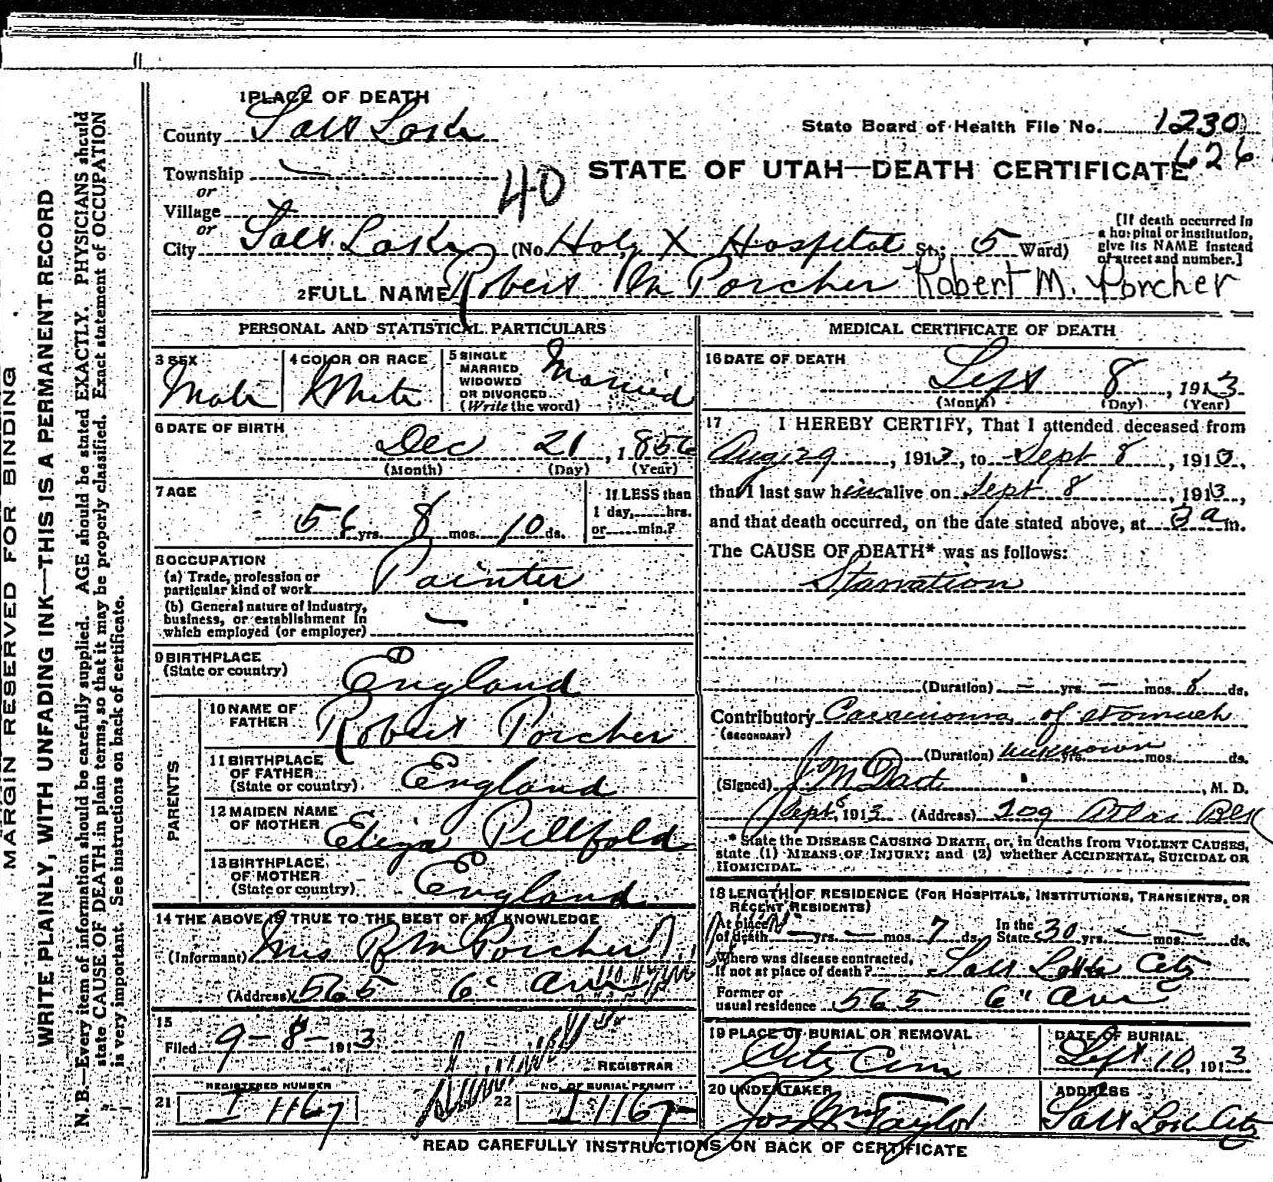 MARGIN RESERVED FOR BINDING
WRITE PLAINLY, WITH UNFADING INK—THIS IS A PERMANENT RECORD
N. B.—Every item of information should be carefully supplied. AGE should be stated EXACTLY. PHYSICIANS should
state CAUSE OF DEATH in plain terms, so that it may be properly classified. Exact statement of OCCUPATION
is very important. See instructions on back of certificate.
1 PLACE OF DEATH
County Salt Lake
State Board of Health File No. 1230
626
Township —
or
Village
or
40
STATE OF UTAH—DEATH CERTIFICATE
City Salt Lake (No. Holy X Hospital St.; 5 Ward)
[If death occurred in
a hospital or institution,
give its NAME instead
of street and number.]
2 FULL NAME Robert M Porcher Robert M. Porcher
PERSONAL AND STATISTICAL PARTICULARS
3 SEX
Male
4 COLOR OR RACE
White
5 SINGLE
MARRIED
WIDOWED
OR DIVORCED
(Write the word)
Married
6 DATE OF BIRTH
Dec 21, 1856
(Month) (Day) (Year)
7 AGE
56 yrs. 8 mos. 10 ds.
If LESS than
1 day, hrs.
or min.?
8 OCCUPATION
(a) Trade, profession or
particular kind of work Painter
(b) General nature of industry,
business, or establishment in
which employed (or employer) —
9 BIRTHPLACE
(State or country)
England
PARENTS
10 NAME OF
FATHER
Robert Porcher
11 BIRTHPLACE
OF FATHER
(State or country)
England
12 MAIDEN NAME
OF MOTHER
Eliza Pillfold
13 BIRTHPLACE
OF MOTHER
(State or country)
England
14 THE ABOVE IS TRUE TO THE BEST OF MY KNOWLEDGE
(Informant) Mrs R M Porcher
(Address) 565 6" Ave
15
Filed 9-8-1913
REGISTRAR
REGISTERED NUMBER
21 I 1167
NO. OF BURIAL PERMIT
22 I 1167
MEDICAL CERTIFICATE OF DEATH
16 DATE OF DEATH
Sept 8, 1913
(Month) (Day) (Year)
17 I HEREBY CERTIFY, That I attended deceased from
Aug 29, 1913, to Sept 8, 1913,
that I last saw him alive on Sept 8, 1913,
and that death occurred, on the date stated above, at 3 a m.
The CAUSE OF DEATH* was as follows:
Starvation
(Duration) — yrs. — mos. 8 ds.
Contributory Carcinoma of stomach
(SECONDARY)
(Duration) unknown yrs. mos. ds.
(Signed) J M Dart, M. D.
Sept 8, 1913 (Address) 209 Atlas Blk
* State the DISEASE CAUSING DEATH, or, in deaths from VIOLENT CAUSES,
state (1) MEANS OF INJURY; and (2) whether ACCIDENTAL, SUICIDAL OR
HOMICIDAL.
18 LENGTH OF RESIDENCE (FOR HOSPITALS, INSTITUTIONS, TRANSIENTS, OR
RECENT RESIDENTS)
At place
of death — yrs. — mos. 7 ds. In the
State 30 yrs. — mos. — ds.
Where was disease contracted,
if not at place of death? Salt Lake City
Former or
usual residence 565 6" Ave
19 PLACE OF BURIAL OR REMOVAL
City Cem
DATE OF BURIAL
Sept 10, 1913
20 UNDERTAKER
Jos Wm Taylor
ADDRESS
Salt Lake City
READ CAREFULLY INSTRUCTIONS ON BACK OF CERTIFICATE